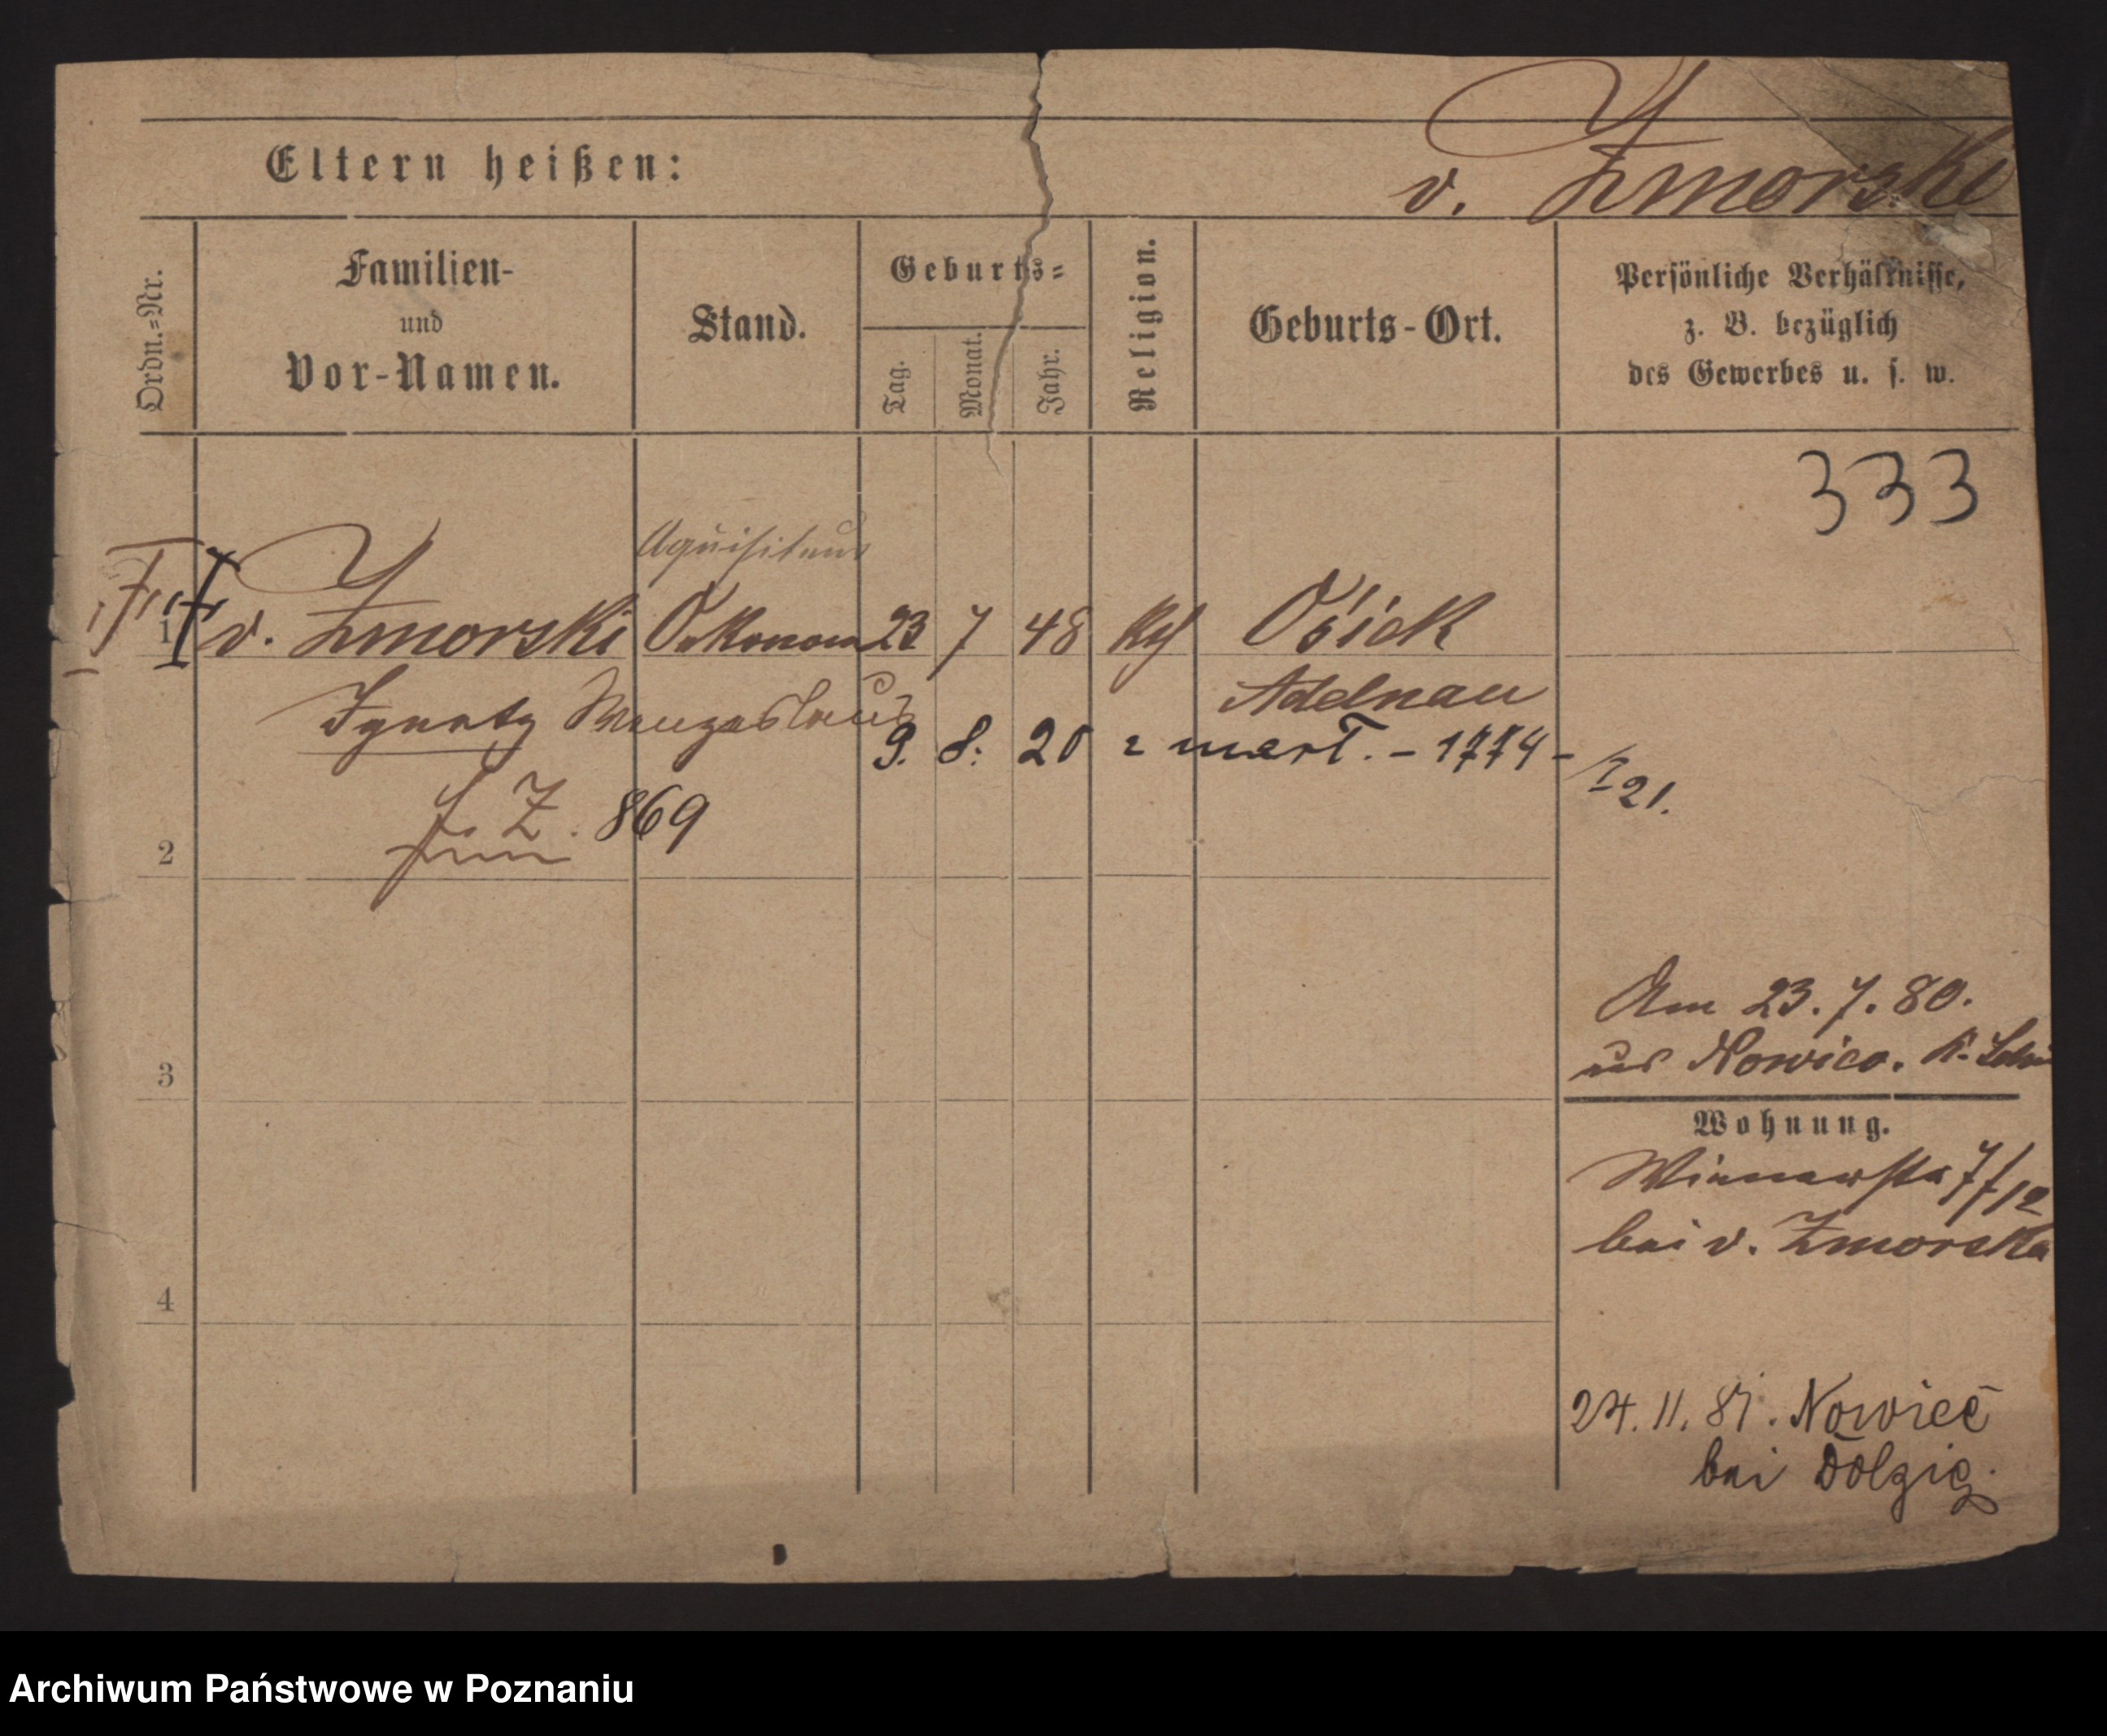 Eltern heißen:
v. Zmorski
Ordn.=Nr.
Familien-
und
Vor-Namen.
Stand.
Geburts=
Tag.
Monat.
Jahr.
Religion.
Geburts-Ort.
Persönliche Verhältnisse,
z. B. bezüglich
des Gewerbes u. s. w.
333
Aquisiteur
1 v. Zmorski Oekonom 23 7 48 kth Osiek
Ignatz Wenzeslaus Adelnau
9. 8. 20 mort. - 1774 -
21.
f. Z. 869
2
3
Am 23. 7. 80.
aus Nowiec. K.
Wohnung.
Wienerstr 7/12
bei v. Zmorska
4
24. 11. 81. Nowiec
bei Dolzig.
Archiwum Państwowe w Poznaniu